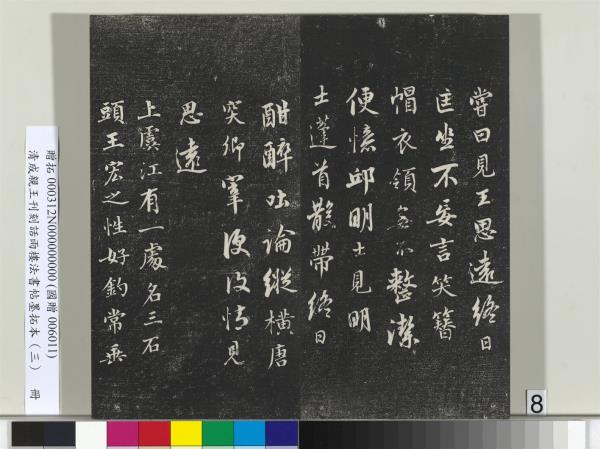 嘗曰見王思遠終日
匡坐不妄言笑簪
帽衣領無不整潔
便憶邱明士見明
士蓬首散帶終日
酣醉吐論縱橫唐
突卿宰便復憶見
思遠
上虞江有一處名三石
頭王宏之性好釣常垂
贈拓 000312N000000000 (國贈 006011)
清成親王刊刻話雨樓法書帖墨拓本（三） 冊
8